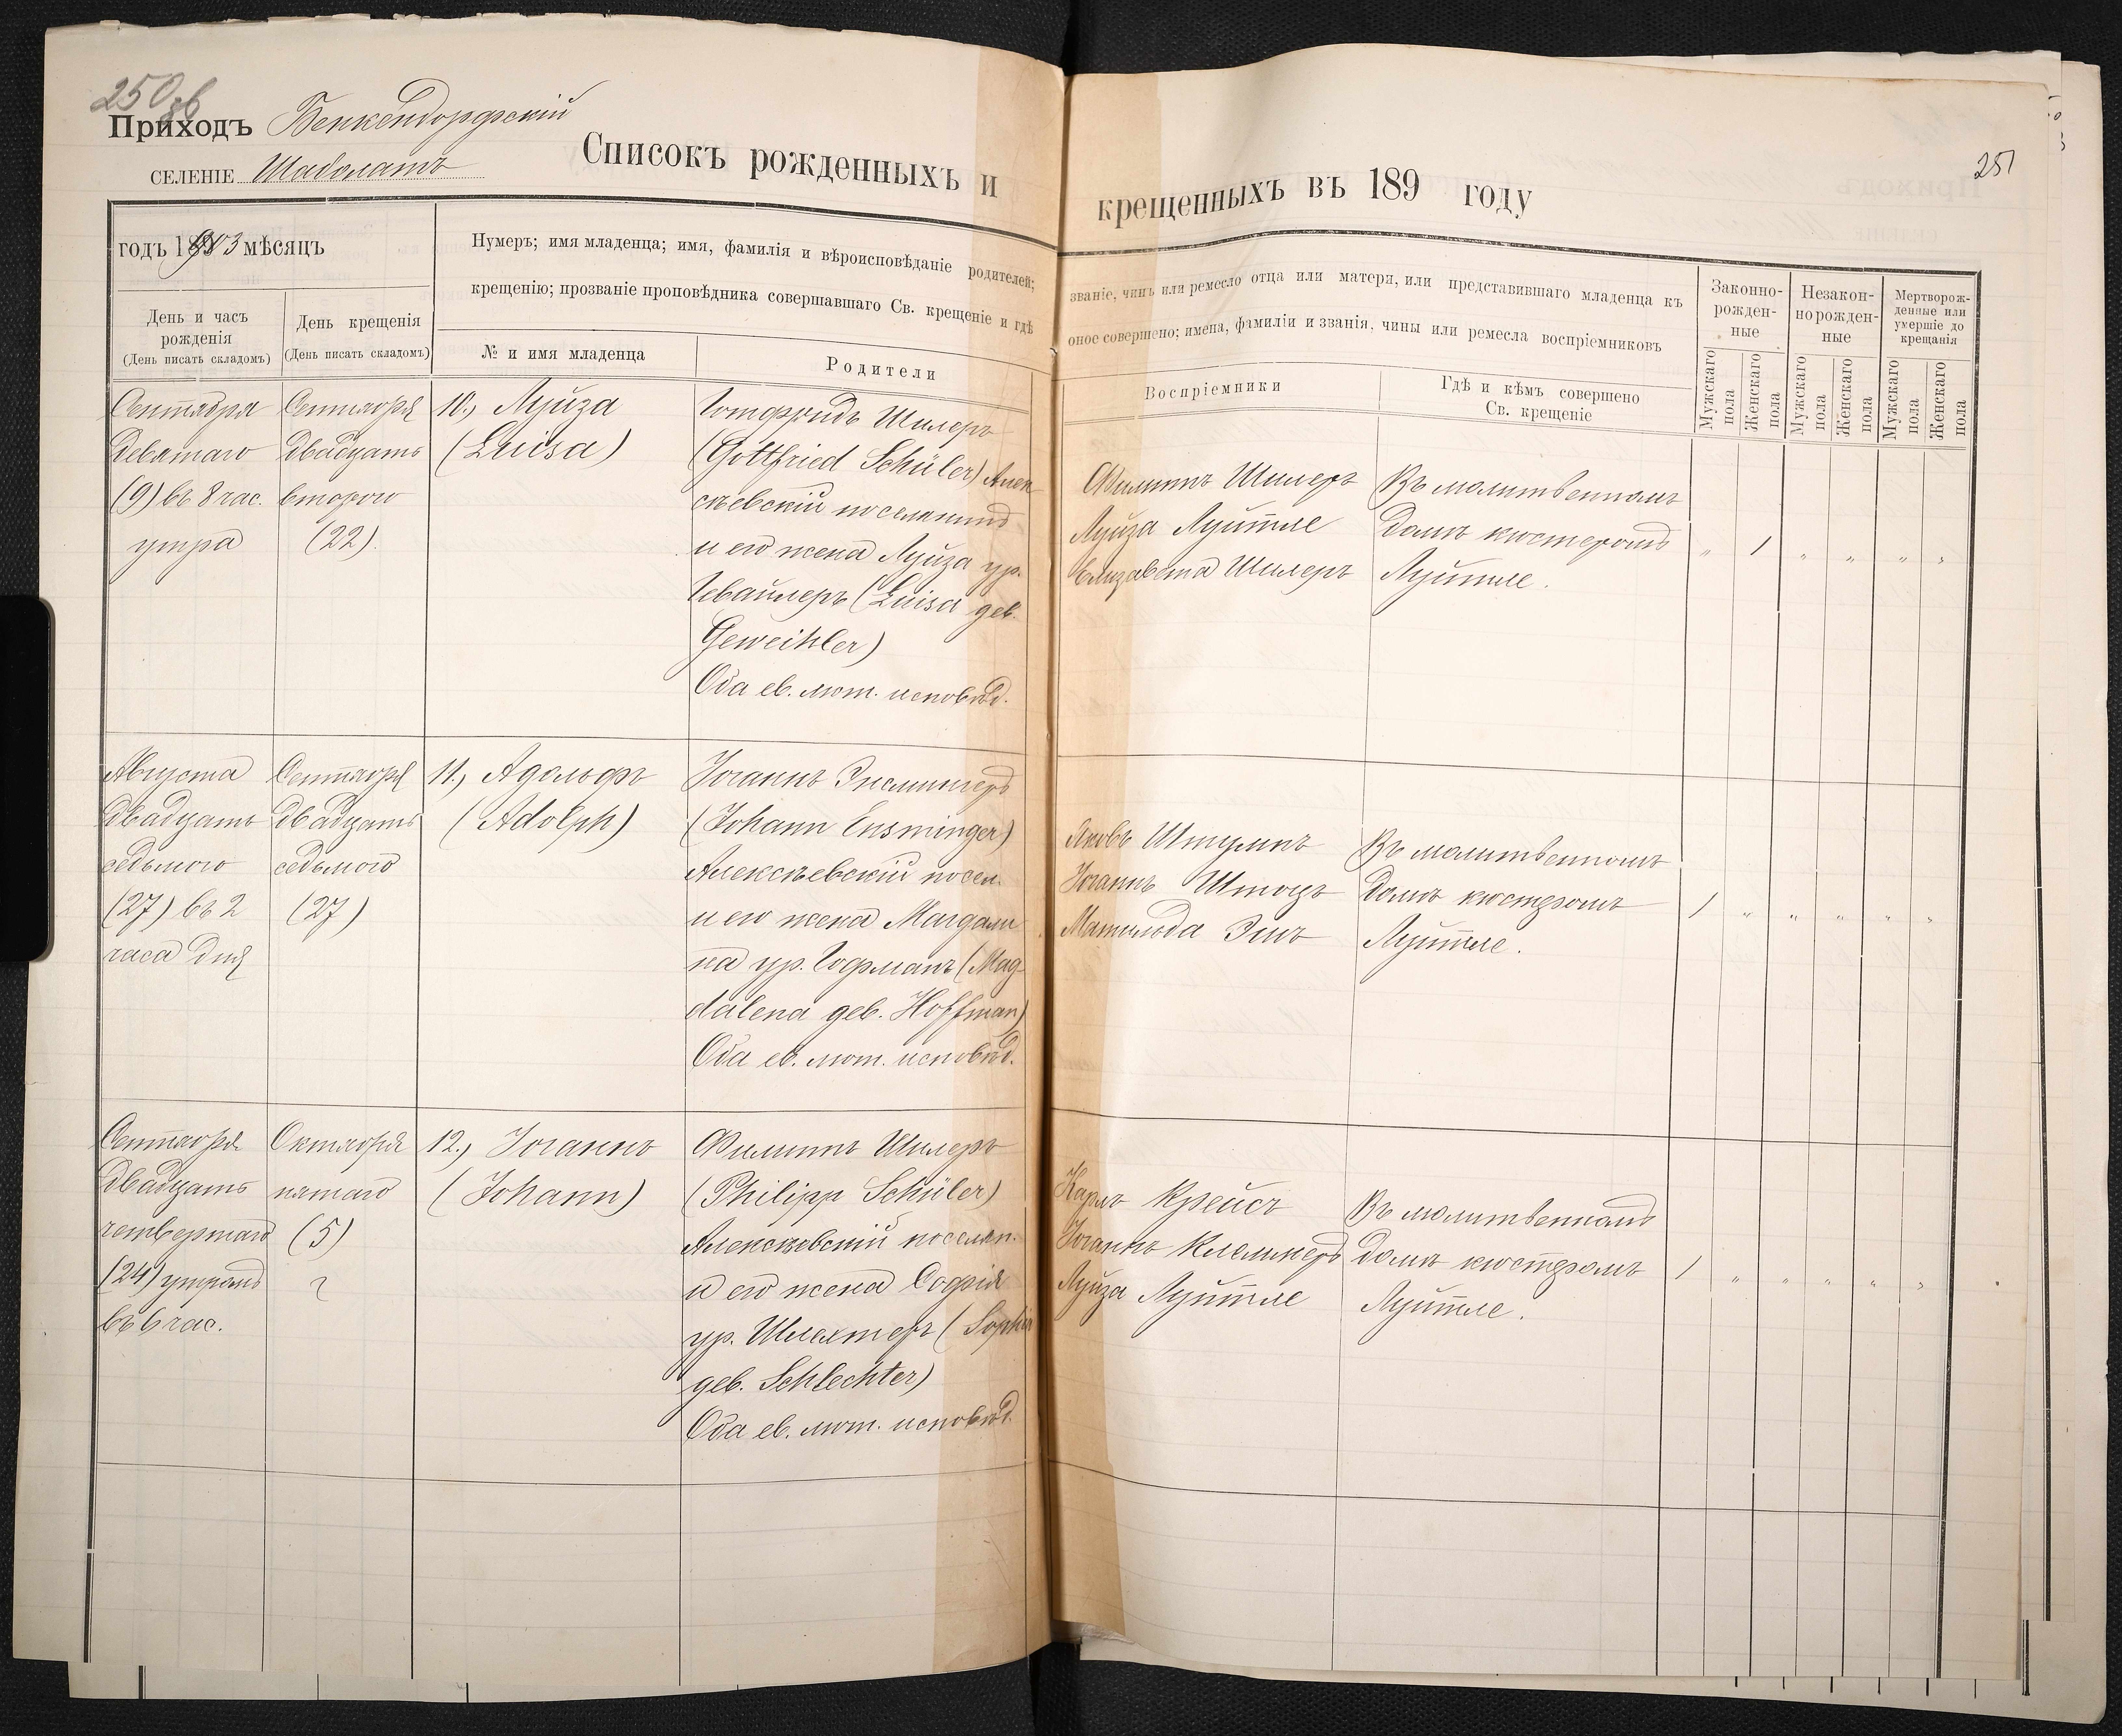 250 об
Приходъ Бенкендорфскій
селеніе Шаболатъ
Списокъ рожденныхъ и
крещенныхъ въ 189 году
251
годъ 1903 мѣсяцъ
Нумеръ; имя младенца; имя, фамилія и вѣроисповѣданіе родителей;
званіе, чинъ или ремесло отца или матери, или представившаго младенца къ
крещенію; прозваніе проповѣдника совершавшаго Св. крещеніе и гдѣ
оное совершено; имена, фамиліи и званія, чины или ремесла воспріемниковъ
День и часъ
рожденія
(День писать складомъ)
День крещенія
(День писать складомъ)
№ и имя младенца
Родители
Воспріемники
Гдѣ и кѣмъ совершено
Св. крещеніе
Законно-
рожден-
ные
Незакон-
норожден-
ные
Мертворож-
денные или
умершіе до
крещанія
Мужскаго
пола
Женскаго
пола
Мужскаго
пола
Женскаго
пола
Мужскаго
пола
Женскаго
пола
Сентября
девятаго
(9) въ 8 час.
утра
Сентября
двадцать
второго
(22).
10., Луиза
(Luisa)
Готфридъ Шилеръ
(Gottfried Schüler) Алек
сѣевскій поселянинъ
и его жена Луиза ур.
Гевайлеръ (Luisa geb.
Geweihler)
Оба ев. лют. исповѣд.
Филиппъ Шилеръ
Луиза Луитле
Елизавета Шилеръ
Въ молитвенномъ
домѣ кюстеромъ
Луитле.
„ 1 „ „ „ „
Августа
двадцать
седьмого
(27) въ 2
часа дня
Сентября
двадцать
седьмого
(27)
11., Адольфъ
(Adolph)
Іоганнъ Энсмингеръ
(Johann Ensminger)
Алексѣевскій посел.
и его жена Магдали
на ур. Гофманъ (Mag
dalena geb. Hoffman)
Оба ев. лют. исповѣд.
Яковъ Штумпъ
Іоганнъ
Матильда
Въ молитвенномъ
домѣ кюстеромъ
Луитле.
1 „ „ „ „ „
Сентября
двадцать
четвертаго
(24) утромъ
въ 6 час.
Октября
пятаго
(5)
12., Іоганнъ
(Johann)
Филиппъ Шилеръ
(Philipp Schüler)
Алексѣевскій поселян.
и его жена Софія
ур. Шлехтеръ (Sophia
geb. Schlechter)
Оба ев. лют. исповѣд.
Карлъ Крейсъ
Іоганнъ
Луиза Луитле
Въ молитвенномъ
домѣ кюстеромъ
Луитле.
1 „ „ „ „ „